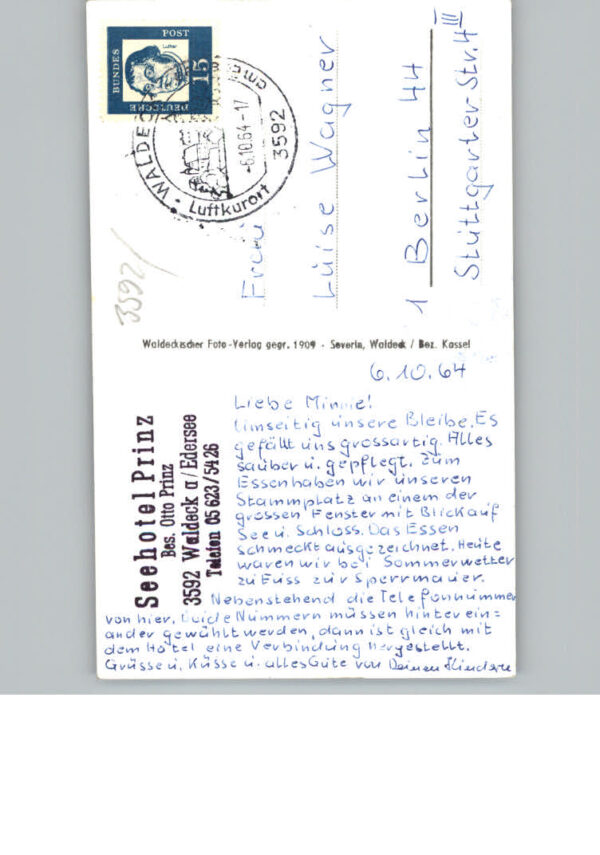 DEUTSCHE
BUNDES
POST
15
Luther
WALDECK
-6.10.64-17
3592
Luftkurort
Frau
Luise Wagner
1 Berlin 44
Stuttgarter Str. 4 III
3592/
Waldeckischer Foto-Verlag gegr. 1909 · Severin, Waldeck / Bez. Kassel
6.10.64
Seehotel Prinz
Bes. Otto Prinz
3592 Waldeck a/Edersee
Telefon 05623/5426
Liebe Minnie!
Umseitig unsere Bleibe. Es
gefällt uns grossartig. Alles
sauber u. gepflegt. Zum
Essen haben wir unseren
Stammplatz an einem der
grossen Fenster mit Blick auf
See u. Schloss. Das Essen
schmeckt ausgezeichnet. Heute
waren wir bei Sommerwetter
zu Fuss zur Sperrmauer.
Nebenstehend die Telefonnummer
von hier, beide Nummern müssen hinterein=
ander gewählt werden, dann ist gleich mit
dem Hotel eine Verbindung hergestellt.
Grüsse u. Küsse u. alles Gute von Deinen Kindern